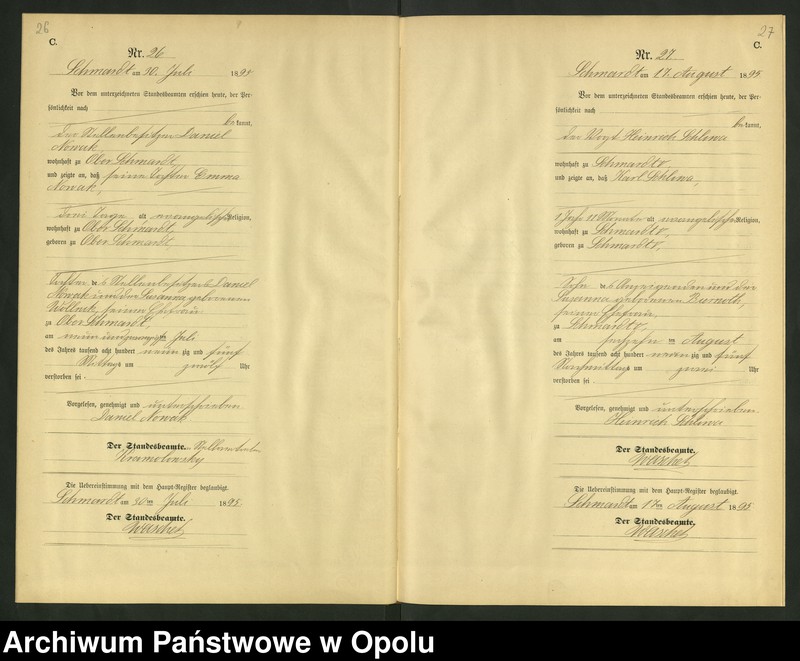 26
C.
Nr. 26
Schmardt am 30. Juli 1895
Vor dem unterzeichneten Standesbeamten erschien heute, der Per-
sönlichkeit nach
be kannt,
der Stellenbesitzer Daniel
Nowak,
wohnhaft zu Ober Schmardt,
und zeigte an, daß seine Tochter Emma
Nowak,
drei Tage alt, evangelischer Religion,
wohnhaft zu Ober Schmardt,
geboren zu Ober Schmardt,
Tochter des Stellenbesitzers Daniel
Nowak und der Susanna geborenen
seiner Ehefrau
zu Ober Schmardt,
am neun und zwanzigsten Juli
des Jahres tausend acht hundert neun zig und fünf
Mittags um zwölf Uhr
verstorben sei.
Vorgelesen, genehmigt und unterschrieben
Daniel Nowak
Der Standesbeamte.
Die Uebereinstimmung mit dem Haupt-Register beglaubigt.
Schmardt am 30ten Juli 1895
Der Standesbeamte.
27
C.
Nr. 27
Schmardt am 17. August 1895
Vor dem unterzeichneten Standesbeamten erschien heute, der Per-
sönlichkeit nach
be kannt,
der Vogt Heinrich Schlowa
wohnhaft zu Schmardt
und zeigte an, daß Karl Schlowa,
1 Jahr 11 Monate alt, evangelischer Religion,
wohnhaft zu Schmardt
geboren zu Schmardt
Sohn des Anzeigenden und der
Susanna geborenen
seiner Ehefrau,
zu Schmardt
am ten August
des Jahres tausend acht hundert neun zig und fünf
Nachmittags um Uhr
verstorben sei.
Vorgelesen, genehmigt und unterschrieben
Heinrich Schlowa
Der Standesbeamte.
Die Uebereinstimmung mit dem Haupt-Register beglaubigt.
Schmardt am 17ten August 1895
Der Standesbeamte.
Archiwum Państwowe w Opolu